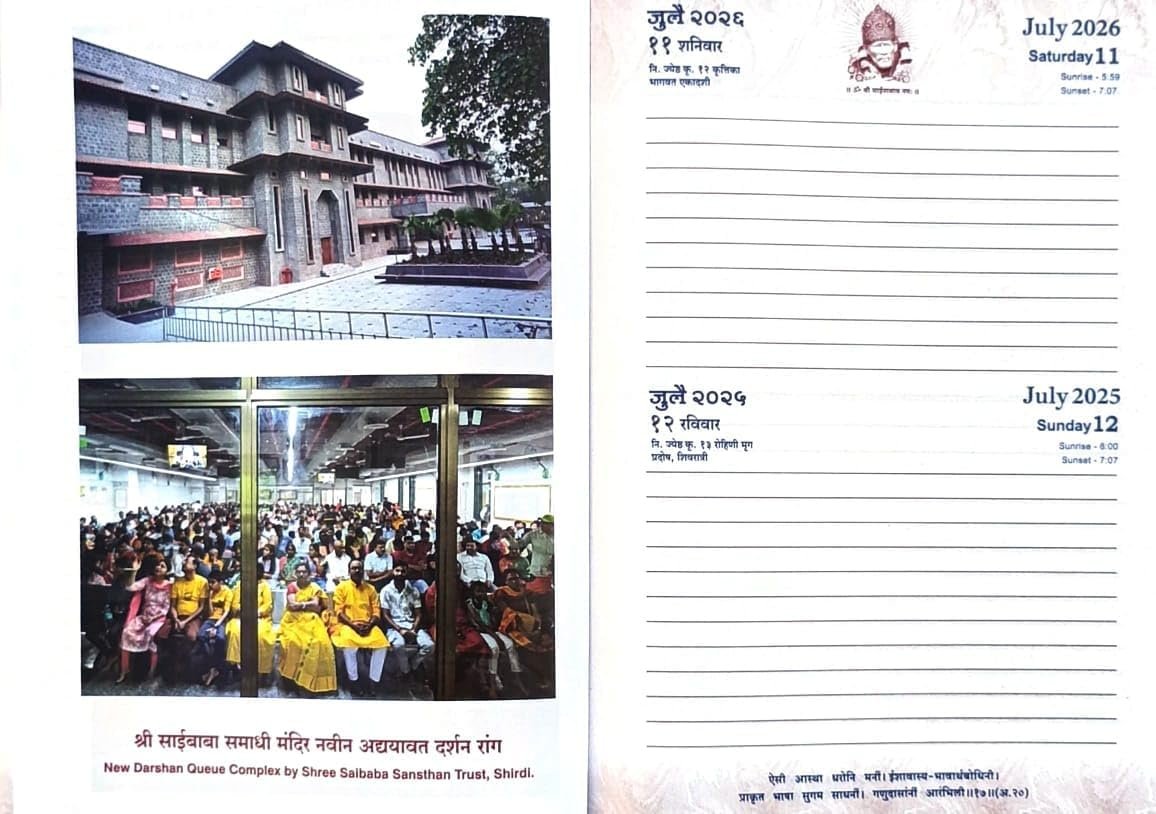 श्री साईबाबा समाधी मंदिर नवीन अद्ययावत दर्शन रांग
New Darshan Queue Complex by Shree Saibaba Sansthan Trust, Shirdi.
जुलै २०२६
११ शनिवार
नि. ज्येष्ठ कृ. १२ कृत्तिका
भागवत एकादशी
॥ ॐ श्री साईनाथाय नमः ॥
July 2026
Saturday 11
Sunrise - 5:59
Sunset - 7:07
जुलै २०२५
१२ रविवार
नि. ज्येष्ठ कृ. १३ रोहिणी मृग
प्रदोष, शिवरात्री
July 2025
Sunday 12
Sunrise - 6:00
Sunset - 7:07
ऐसी आस्था धरोनि मनीं। ईशावास्य-भावार्थबोधिनी।
प्राकृत भाषा सुगम साधनीं। गणुदासांनीं आरंभिली॥१७॥(अ.२०)